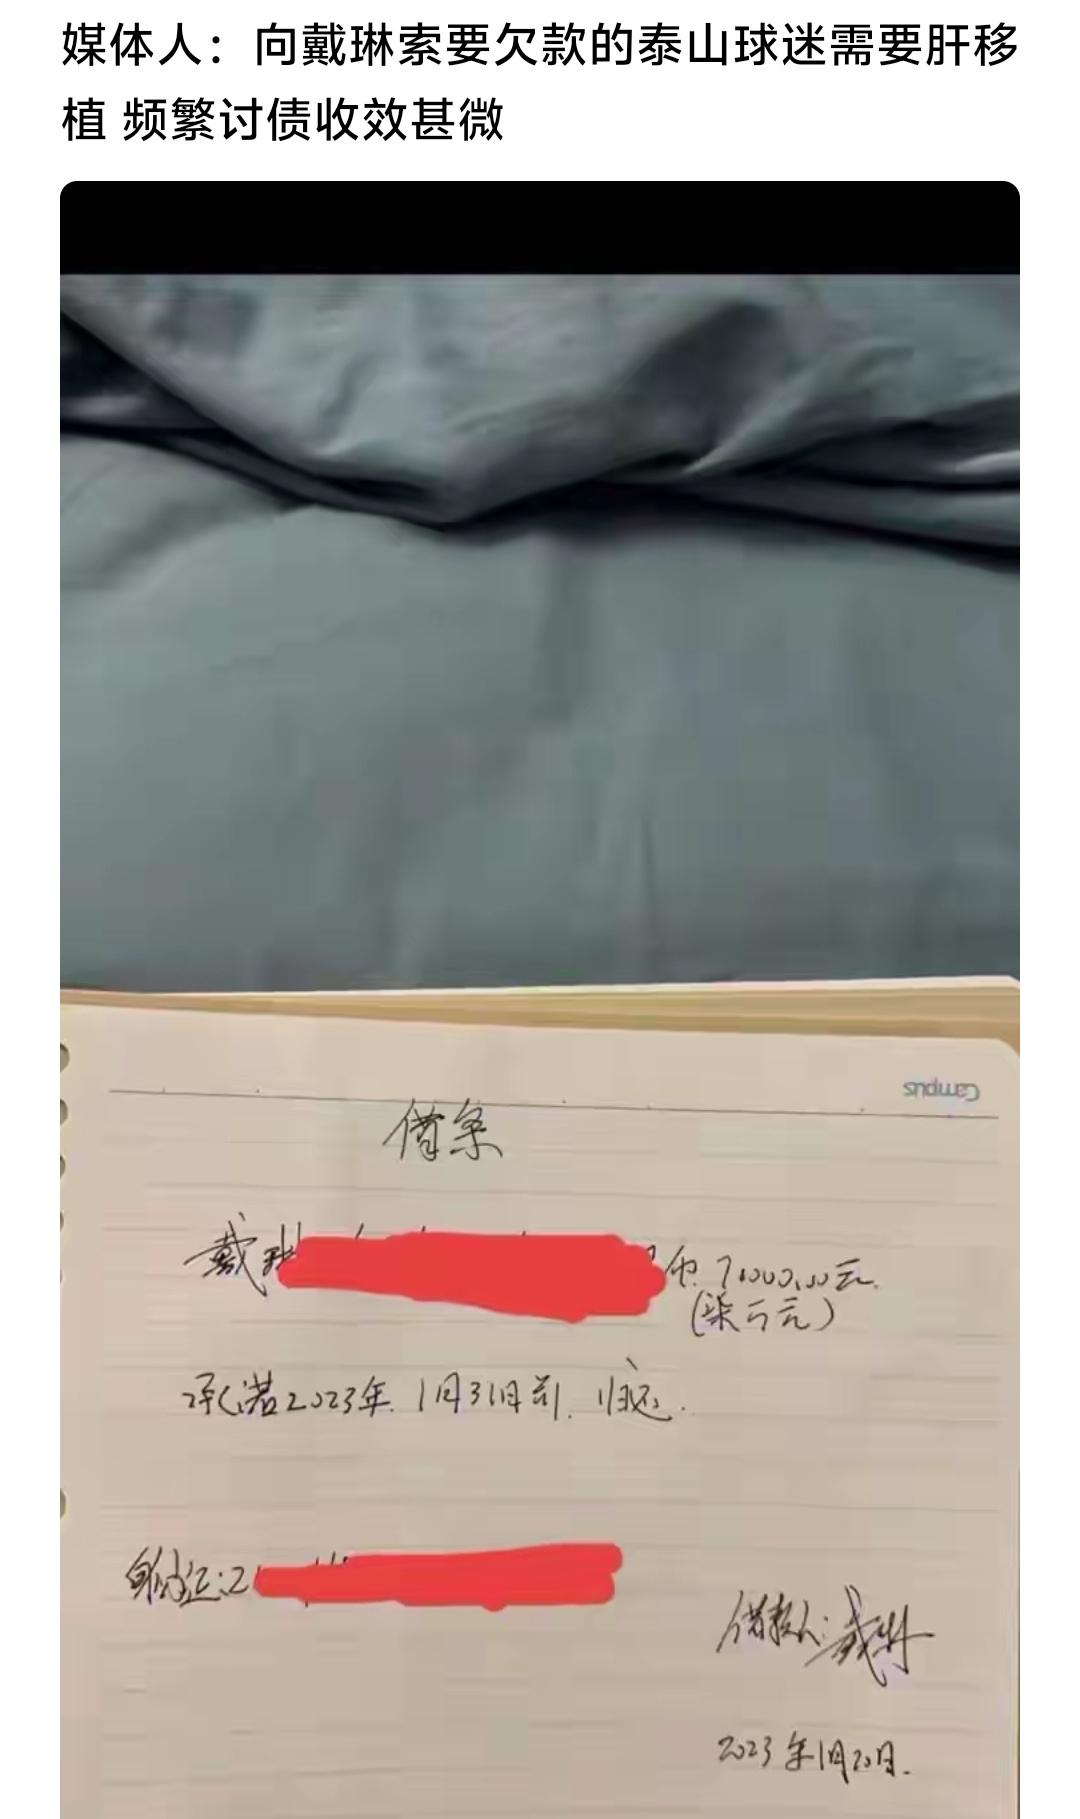 媒体人：向戴琳索要欠款的泰山球迷需要肝移
植 频繁讨债收效甚微
Campus
借条
戴琳
币 7000.00元.
(柒千元)
承诺2023年 1月31日前 归还.
身份证:2
借款人:戴琳
2023年1月20日.